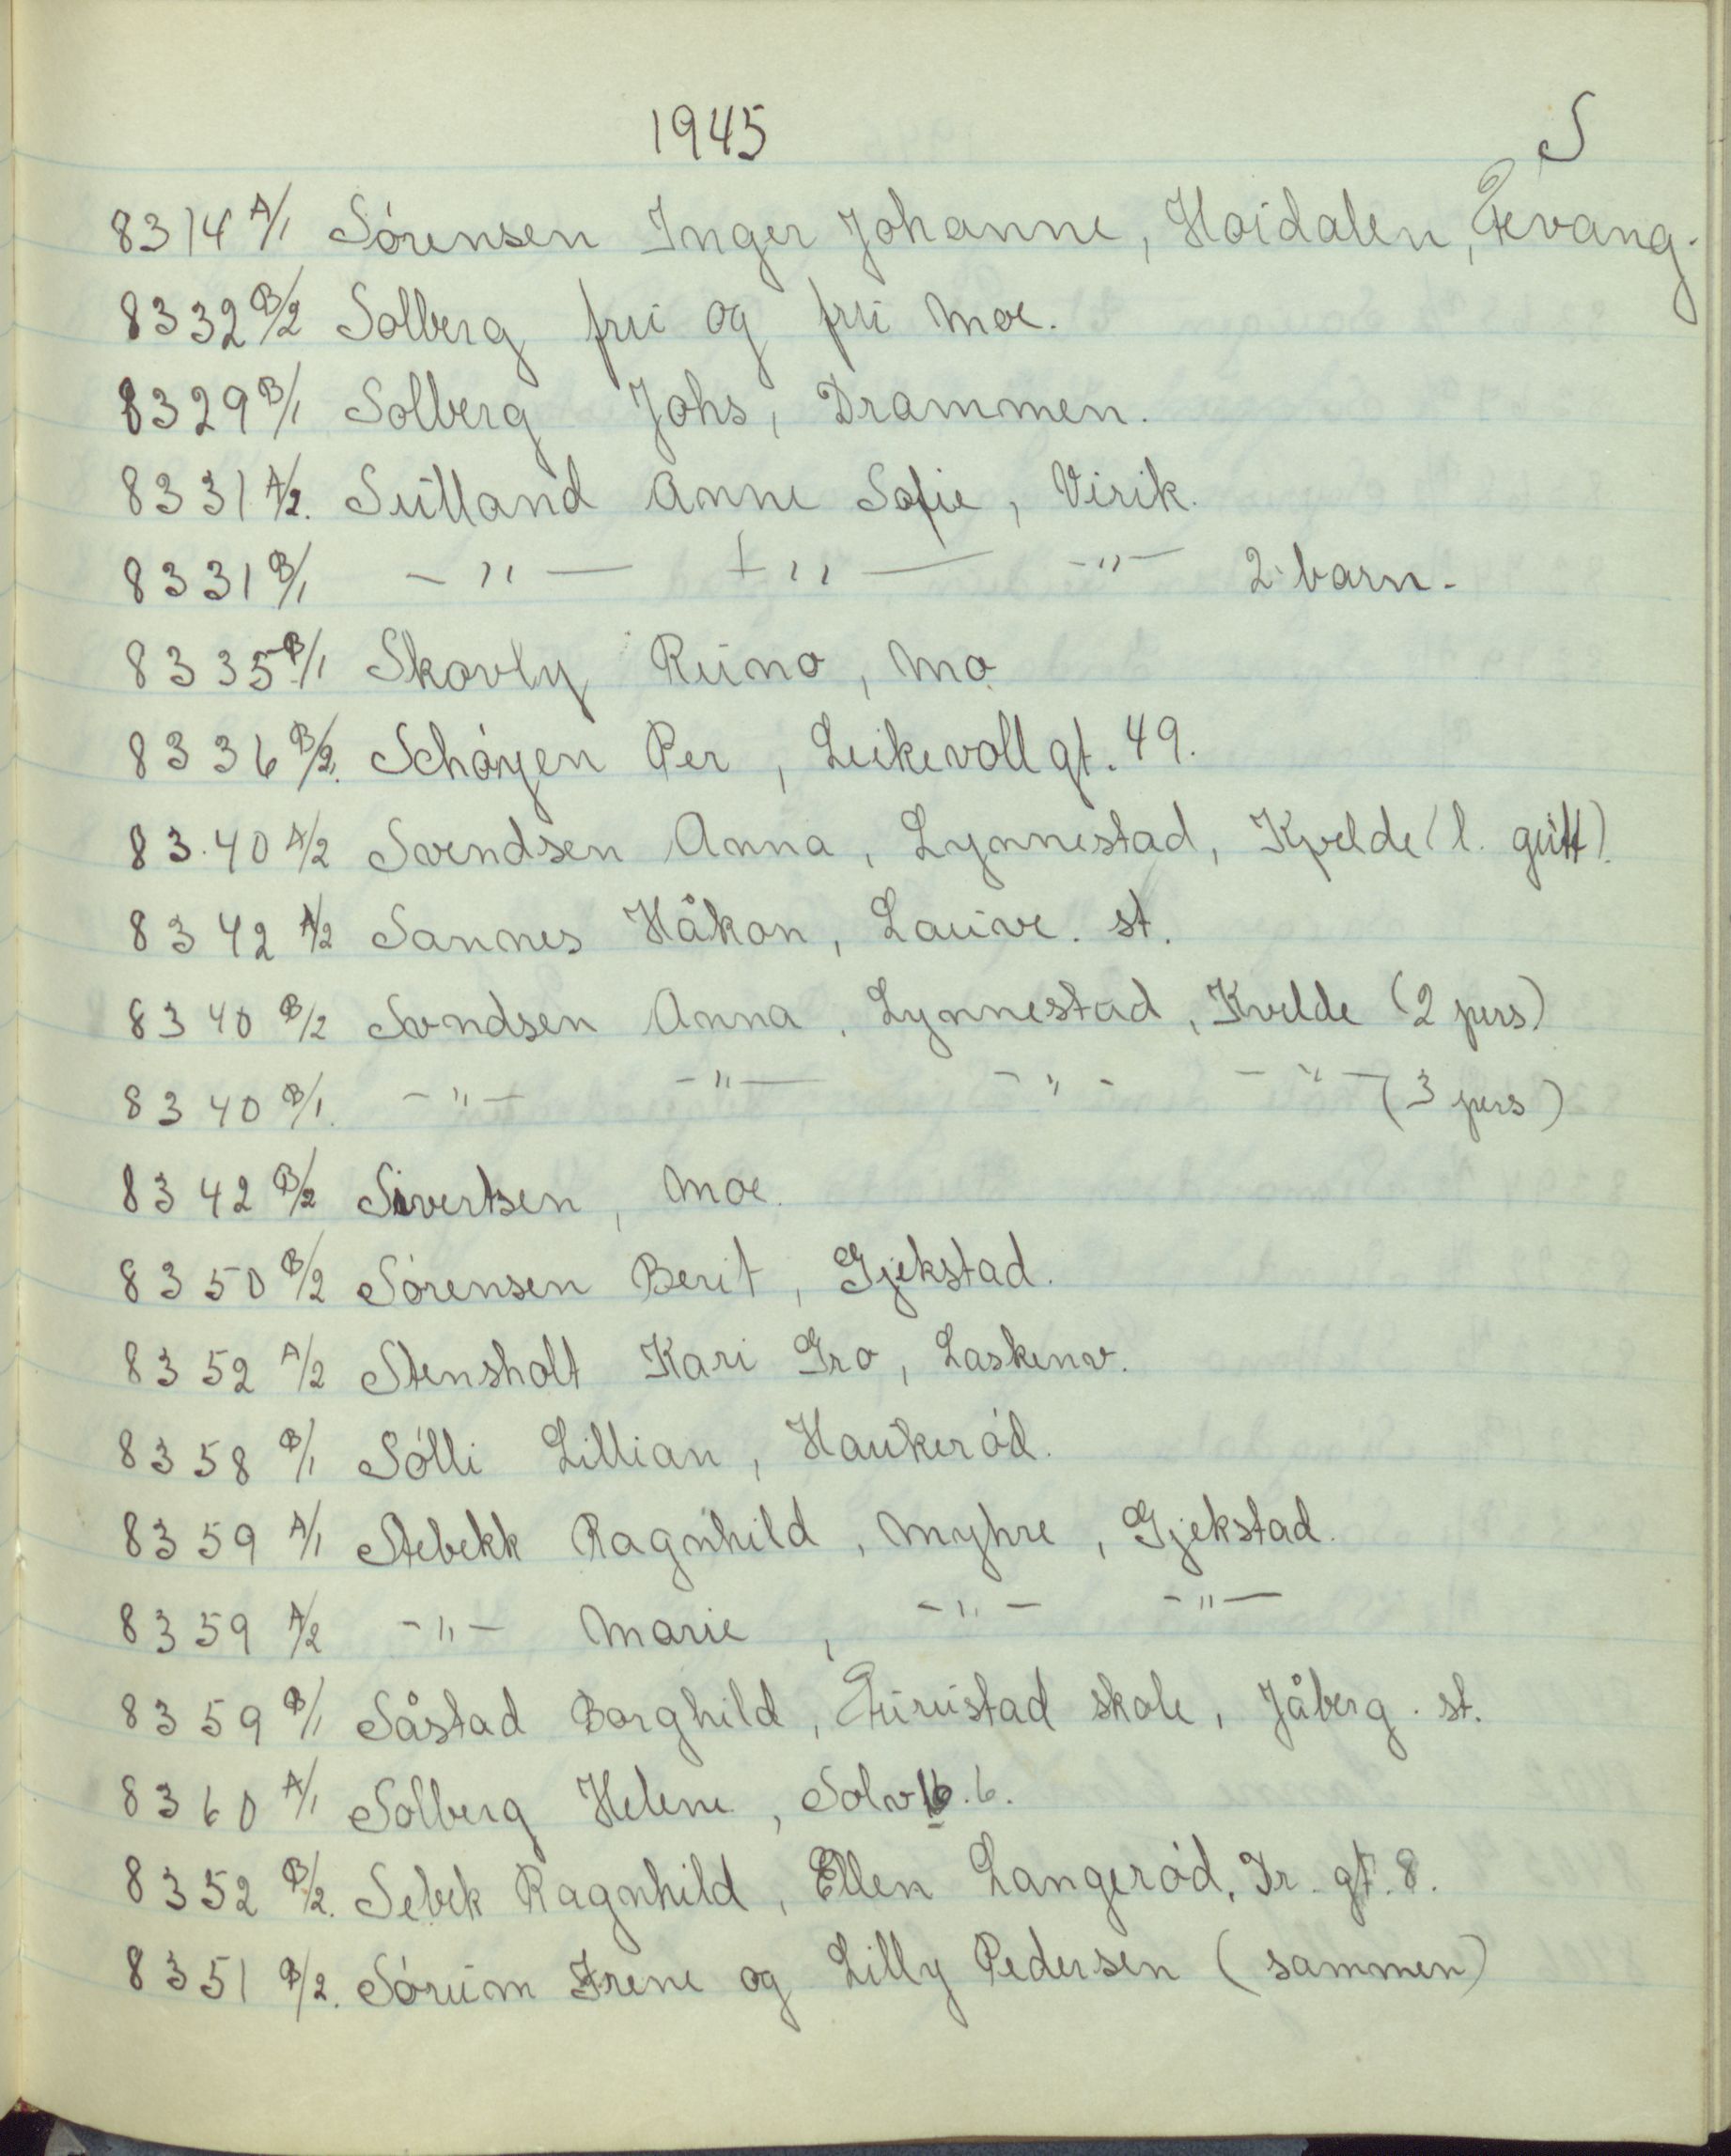 1945 S
8314 A/1 Sørensen Inger Johanne, Høidalen, Fevang.
8332 B/2 Solberg fru og fru Moe.
8329 B/1 Solberg Johs, Drammen.
8331 A/2. Sulland Anne Sofie, Virik.
8331 B/1 -"- -"- -"- 2 barn.
8335 B/1 Skovly Runo, Mo
8336 B/2. Schøyen Per, Leikevollgt. 49.
8340 A/2 Svendsen Anna, Lynnestad, Kvelde (l. gutt).
8342 A/2 Sannes Håkon, Lauve. st.
8340 B/2 Svndsen Anna, Lynnestad, Kvelde (2 pers)
8340 B/1. -"- -"- -"- -"- (3 pers)
8342 B/2 Sivertsen, Moe.
8350 B/2 Sørensen Berit, Gjekstad.
8352 A/2 Stensholt Kari Gro, Laskenv.
8358 B/1 Sølli Lillian, Haukerød.
8359 A/1 Stebekk Ragnhild, Myhre, Gjekstad.
8359 A/2 -"- Marie, -"- -"-
8359 B/1 Såstad Borghild, Furustad skole, Jåberg. st.
8360 A/1 Solberg Helene, Solv. 6.
8352 B/2. Sebek Ragnhild, Ellen Langerød, Tr. gt. 8.
8351 B/2. Sørum Irene og Lilly Pedersen (sammen)